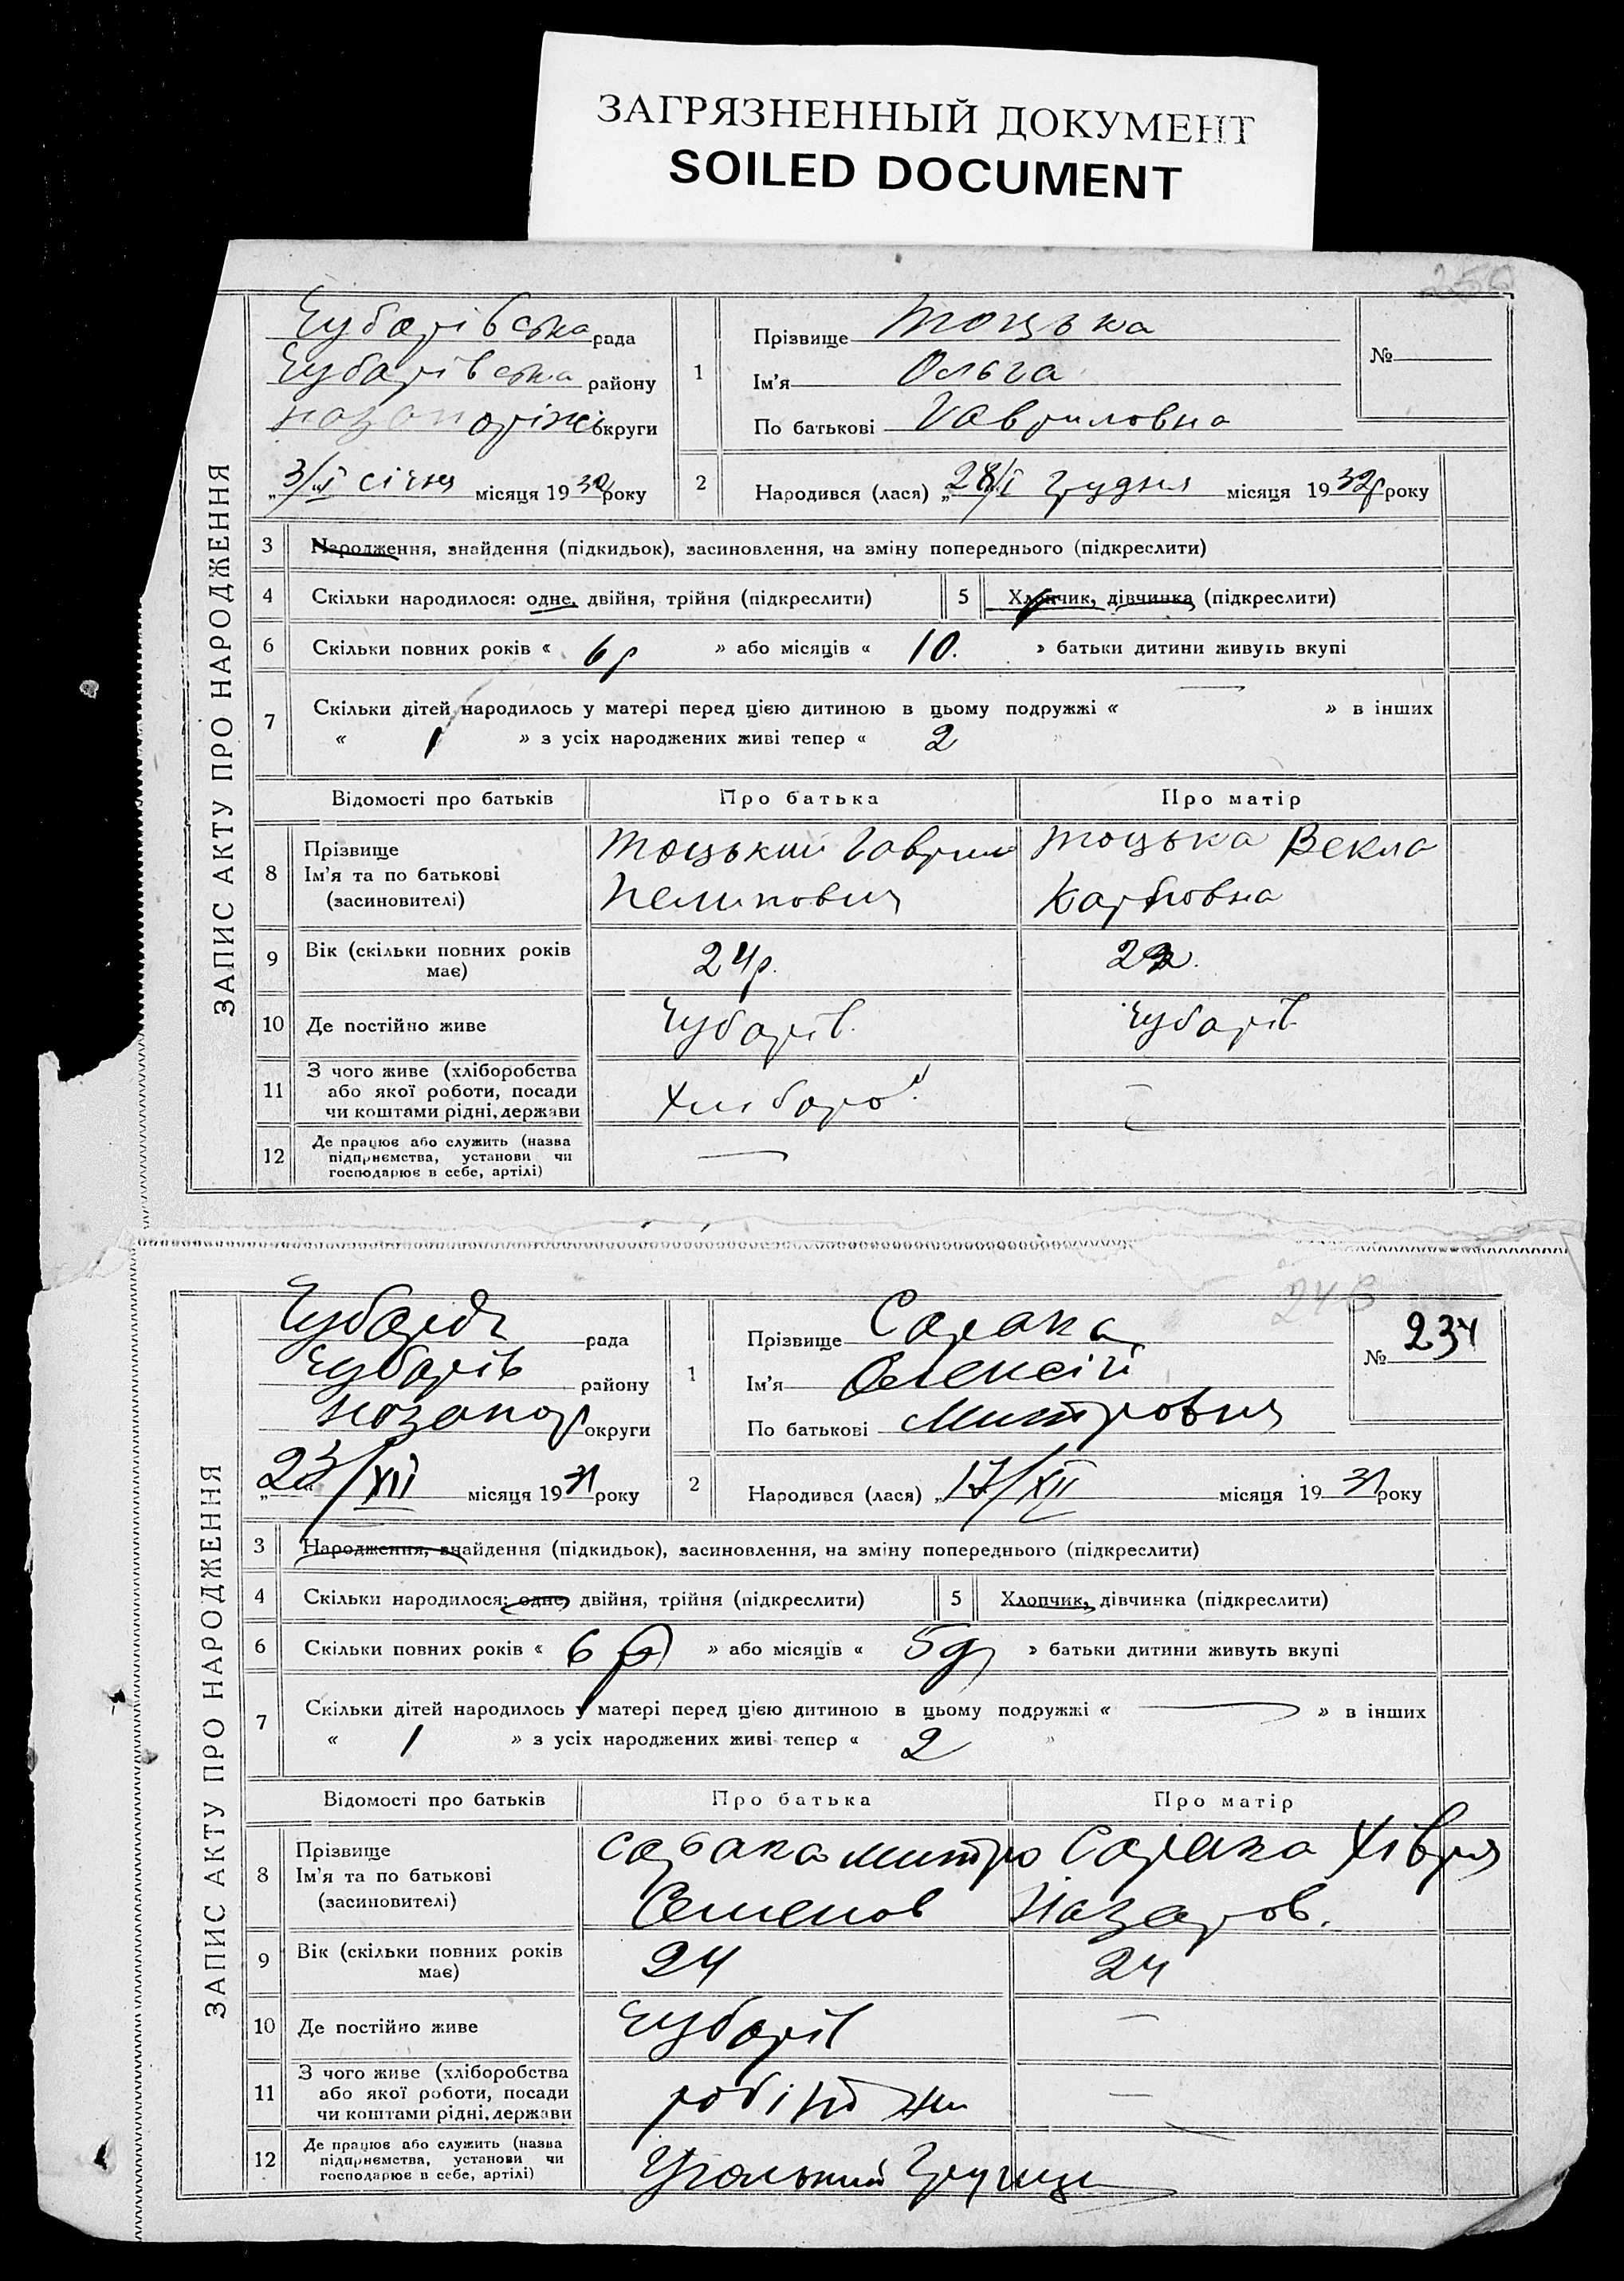 ЗАГРЯЗНЕННЫЙ ДОКУМЕНТ
SOILED DOCUMENT
250
ЗАПИС АКТУ ПРО НАРОДЖЕННЯ
Чубарівська рада
Чубарівська району
округи
3/І січня місяця 1932 року
1
Прізвище Тоцька
Ім'я Ольга
По батькові Гавриловна
№
2
Народився (лася) „28/ грудня місяця 19 року
3 Народження, знайдення (підкидьок), засиновлення, на зміну попереднього (підкреслити)
4 Скільки народилося: одне, двійня, трійня (підкреслити) 5 Хлопчик, дівчинка (підкреслити)
6 Скільки повних років « 6 р » або місяців « 10. » батьки дитини живуть вкупі
7 Скільки дітей народилось у матері перед цією дитиною в цьому подружжі « — » в інших
« 1 » з усіх народжених живі тепер « 2 »
Відомості про батьків Про батька Про матір
8 Прізвище Тоцький Гаврило Тоцька Векла
Ім'я та по батькові
(засиновителі) Карповна
9 Вік (скільки повних років має) 24р.
10 Де постійно живе Чубарів. Чубарів
11 З чого живе (хліборобства
або якої роботи, посади Хлібороб —
чи коштами рідні, держави
12 Де працює або служить (назва
підприємства, установи чи —
господарює в себе, артілі)
248
ЗАПИС АКТУ ПРО НАРОДЖЕННЯ
рада
Чубарів району
округи
23/XII місяця 1931 року
1
Прізвище Сорока
Ім'я Олексій
По батькові Митрович
№ 234
2
Народився (лася) „17/XII місяця 1931 року
3 Народження, знайдення (підкидьок), засиновлення, на зміну попереднього (підкреслити)
4 Скільки народилося: одне, двійня, трійня (підкреслити) 5 Хлопчик, дівчинка (підкреслити)
6 Скільки повних років « 6 р » або місяців « 5 » батьки дитини живуть вкупі
7 Скільки дітей народилось у матері перед цією дитиною в цьому подружжі « — » в інших
« 1 » з усіх народжених живі тепер « 2 »
Відомості про батьків Про батька Про матір
8 Прізвище Сорока Митро Сорока Хівря
Ім'я та по батькові Семенов Назаров.
(засиновителі)
9 Вік (скільки повних років має) 24 24
10 Де постійно живе Чубарів —
11 З чого живе (хліборобства
або якої роботи, посади —
чи коштами рідні, держави
12 Де працює або служить (назва
підприємства, установи чи
господарює в себе, артілі)